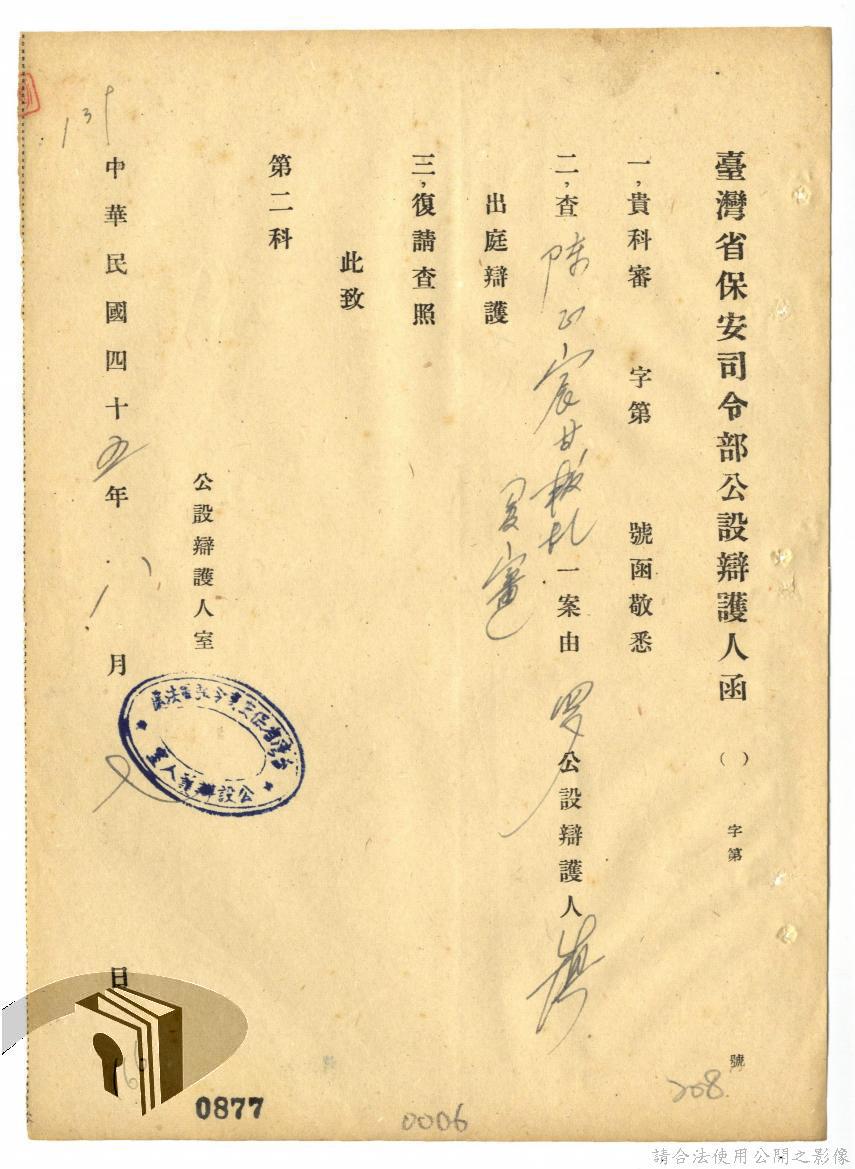 臺灣省保安司令部公設辯護人函 ( ) 字第 號
一，貴科審 字第 號函敬悉
二，查陳正宸甘棷札一案由 罗 公設辯護人
覆審
出庭辯護
三，復請查照
此致
第二科
公設辯護人室
中華民國四十五年八月 日
臺灣省保安司令部軍法處
公設辯護人室
0877
0006
208
請合法使用公開之影像